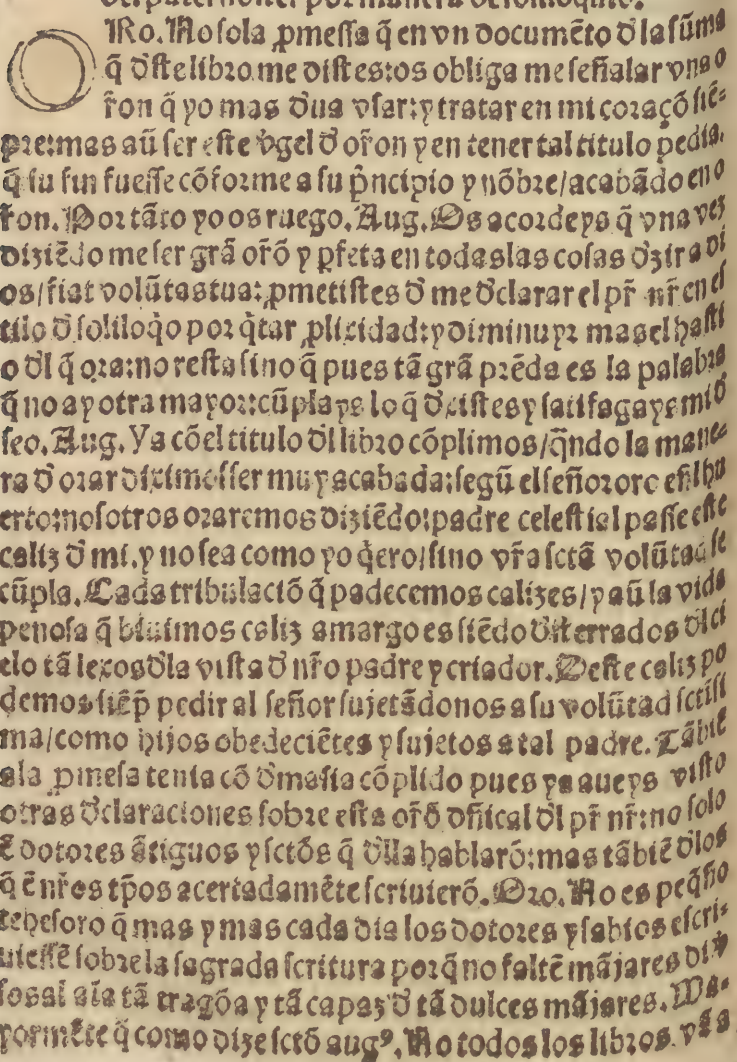 del pater noster por manera de soliloquio.
ORo. No sola ꝓmessa q̃ en vn documẽto đ la sũma
q̃ đste libro me distes: os obliga me señalar vna o
r̃on q̃ yo mas đua vsar: y tratar en mi coraçõ siẽ-
pre: mas aũ ser este v̉gel đ or̃on y en tener tal titulo pedia.
q̃ su fin fuesse cõforme a su p̃ncipio y nõbre/acabãdo en o
r̃on. Por tãto yo os ruego. Aug. Os acordeys q̃ vna vez
diziẽdo me ser grã orõ y ꝑfeta en todas las cosas đzir a di
os/fiat volũtas tua: ꝓmetistes đ me đclarar el pr̃ nr̃ en es
tilo đ soliloq̃o por q̃tar ꝓlixidad: y diminuyr mas el hasti
o đl q̃ ora: no resta sino q̃ pues tã grã prẽda es la palabra
q̃ no ay otra mayor: cũplays lo q̃ đxistes y satisfagays mi đ
seo. Aug. Ya cõ el titulo đl libro cõplimos/q̃ndo la mane-
ra đ orar diximos ser muy acabada: segũ el señor oro en l hu
erto: nosotros oraremos diziẽdo: padre celestial passe este
caliz đ mi. y no sea como yo q̃ero/sino vr̃a sctã volũtad se
cũpla. Cada tribulaciõ q̃ padecemos calizes/y aũ la vida
penosa q̃ biuimos caliz amargo es siẽdo đsterrados đl ci
elo tã lexos đla vista đ nr̃o padre y criador. Deste caliz po
demos siẽp̃ pedir al señor sujetãdonos a su volũtad sctissi
ma/como hijos obedeciẽtes y sujetos a tal padre. Tãbiẽ
ala ꝓmesa tenia cõ đmasia cõplido pues ya aueys visto
otras đclaraciones sobre esta orõ dñical đl pr̃ nr̃: no solo
ẽ dotores ãtiguos y sctõs q̃ đlla hablarõ: mas tãbiẽ đlos
q̃ ẽ nr̃os tp̃os acertadamẽte scriuierõ. Oro. No es peq̃ño
tehesoro q̃ mas y mas cada dia los dotores y sabios escri-
uiessẽ sobre la sagrada scritura porq̃ no faltẽ mãjares di
al aĩa tã tragõa y tã capaz đ tã dulces mãjares. Ma-
yormẽte q̃ como dize sctõ aug⁹. No todos los libros